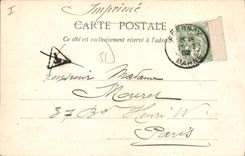 I
Imprimé
CARTE POSTALE
Ce côté est exclusivement réservé à l'adresse
EPERNAY
MARNE
02
51
Monsieur Madame
Mouret
37 Bd Henri IV
Paris